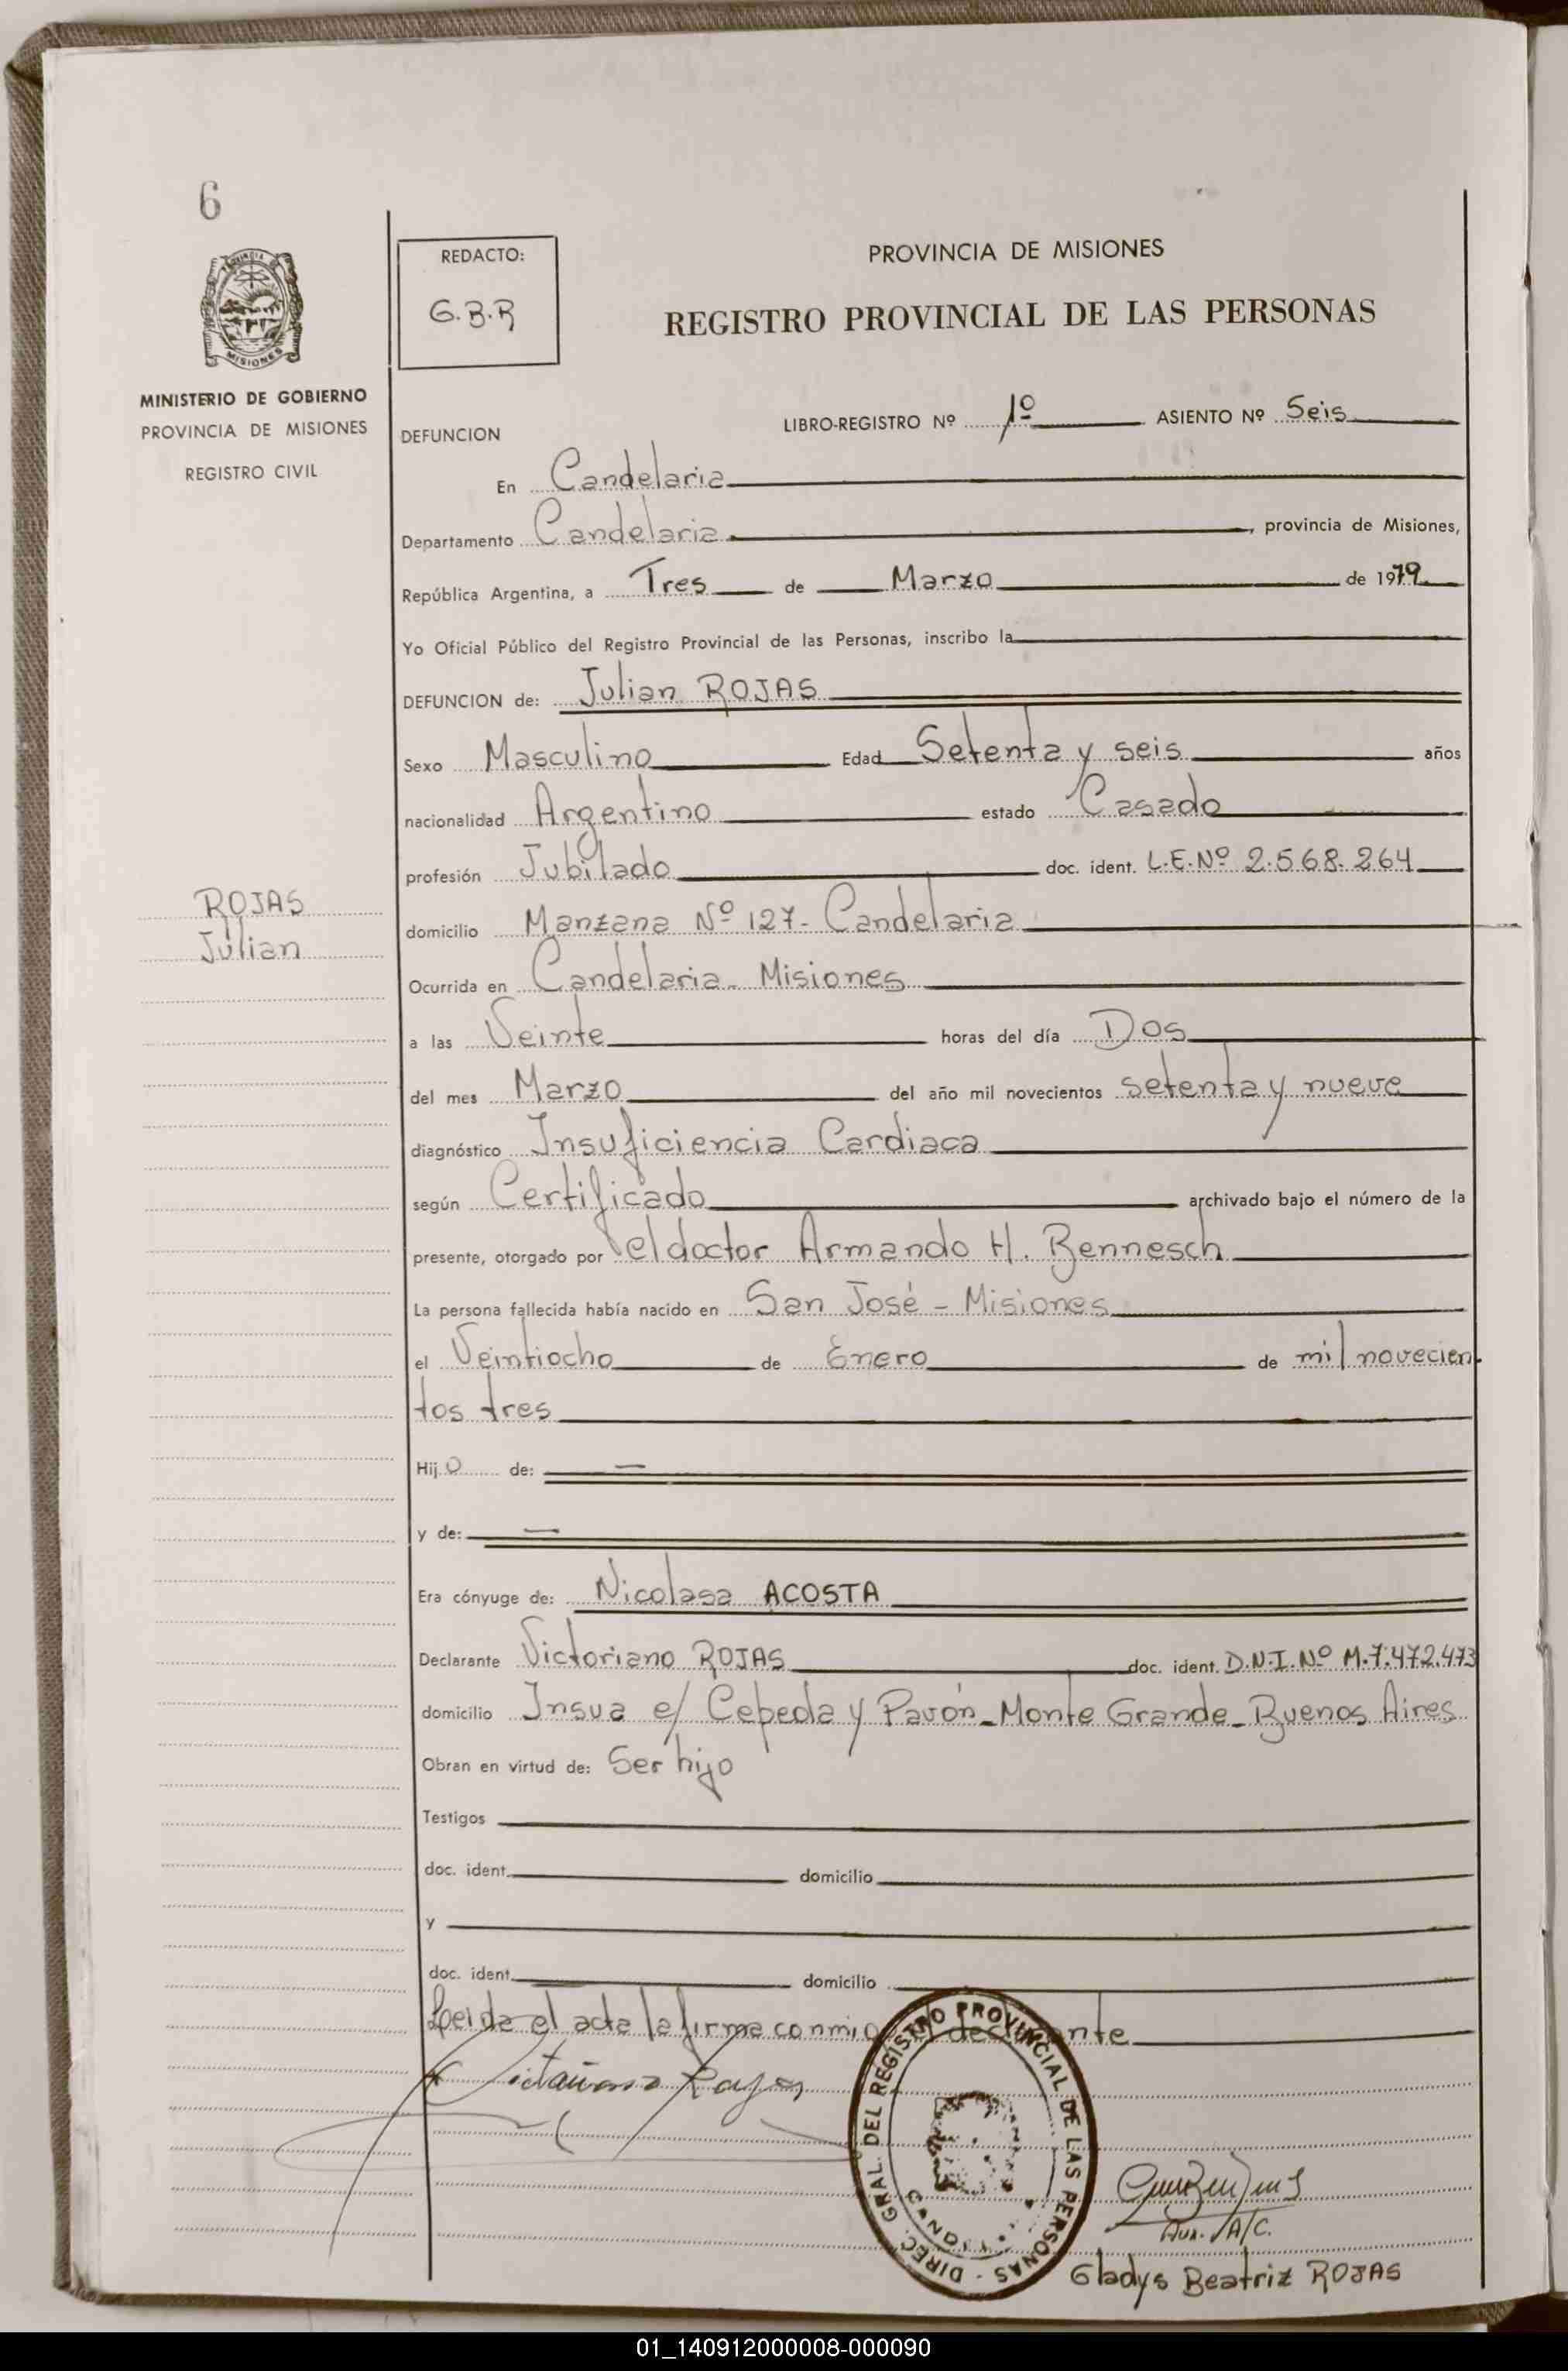 6
PROVINCIA DE
MISIONES
MINISTERIO DE GOBIERNO
PROVINCIA DE MISIONES
REGISTRO CIVIL
ROJAS
Julian
REDACTO:
G.B.R
PROVINCIA DE MISIONES
REGISTRO PROVINCIAL DE LAS PERSONAS
DEFUNCION LIBRO-REGISTRO Nº 1º ASIENTO Nº Seis
En Candelaria
Departamento Candelaria, provincia de Misiones,
República Argentina, a Tres de Marzo de 1979
Yo Oficial Público del Registro Provincial de las Personas, inscribo la
DEFUNCION de: Julian ROJAS
Sexo Masculino Edad Setenta y seis años
nacionalidad Argentino estado Casado
profesión Jubilado doc. ident. L.E.Nº 2.568.264
domicilio Manzana Nº 127- Candelaria
Ocurrida en Candelaria - Misiones
a las Veinte horas del día Dos
del mes Marzo del año mil novecientos setenta y nueve
diagnóstico Insuficiencia Cardiaca
según Certificado archivado bajo el número de la
presente, otorgado por el doctor Armando H. Bennesch
La persona fallecida había nacido en San José - Misiones
el Veintiocho de Enero de mil novecien
tos tres
Hijo de: —
y de: —
Era cónyuge de: Nicolasa ACOSTA
Declarante Victoriano ROJAS doc. ident. D.N.I.Nº M.7.472.473
domicilio Insua e/ Cepeda y Pavón - Monte Grande - Buenos Aires
Obran en virtud de: Ser hijo
Testigos
doc. ident. domicilio
y
doc. ident. domicilio
Leida el acta la firma conmigo el declarante
Victoriano Rojas
DIREC. GRAL. DEL REGISTRO PROVINCIAL DE LAS PERSONAS -
Aux. A/C.
Gladys Beatriz ROJAS
01_140912000008-000090